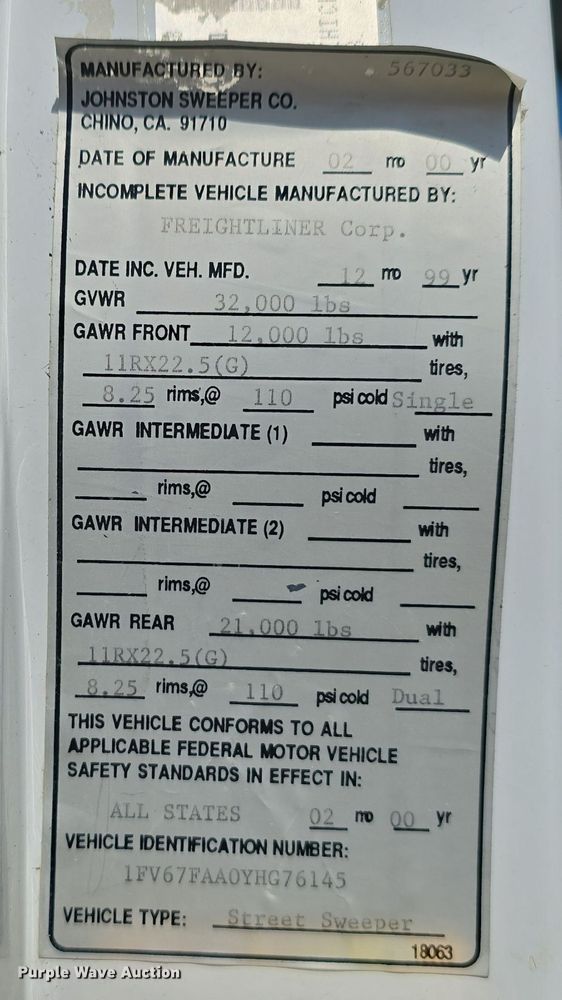 MANUFACTURED BY: 567033
JOHNSTON SWEEPER CO.
CHINO, CA. 91710
DATE OF MANUFACTURE 02 mo 00 yr
INCOMPLETE VEHICLE MANUFACTURED BY:
FREIGHTLINER Corp.
DATE INC. VEH. MFD. 12 mo 99 yr
GVWR 32,000 lbs
GAWR FRONT 12,000 lbs with
11RX22.5(G) tires,
8.25 rims,@ 110 psi cold Single
GAWR INTERMEDIATE (1) with
tires,
rims,@ psi cold
GAWR INTERMEDIATE (2) with
tires,
rims,@ psi cold
GAWR REAR 21,000 lbs with
11RX22.5(G) tires,
8.25 rims,@ 110 psi cold Dual
THIS VEHICLE CONFORMS TO ALL
APPLICABLE FEDERAL MOTOR VEHICLE
SAFETY STANDARDS IN EFFECT IN:
ALL STATES 02 mo 00 yr
VEHICLE IDENTIFICATION NUMBER:
1FV67FAA0YHG76145
VEHICLE TYPE: Street Sweeper
18063
Purple Wave Auction